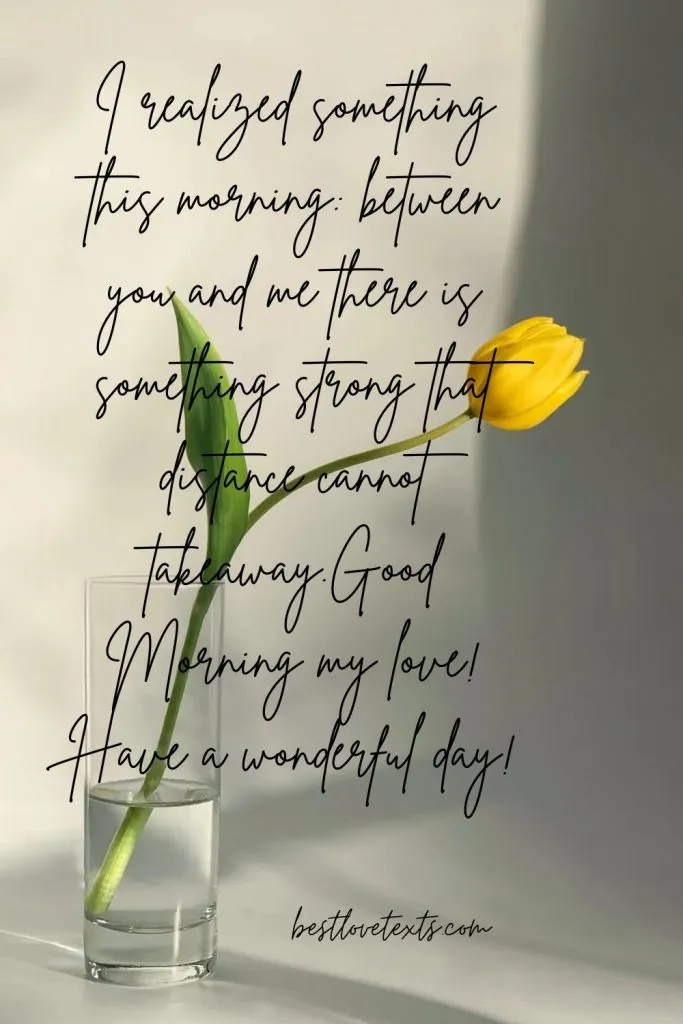 I realized something
this morning: between
you and me there is
something strong that
distance cannot
takeaway.Good
Morning my love!
Have a wonderful day!
bestlovetexts.com